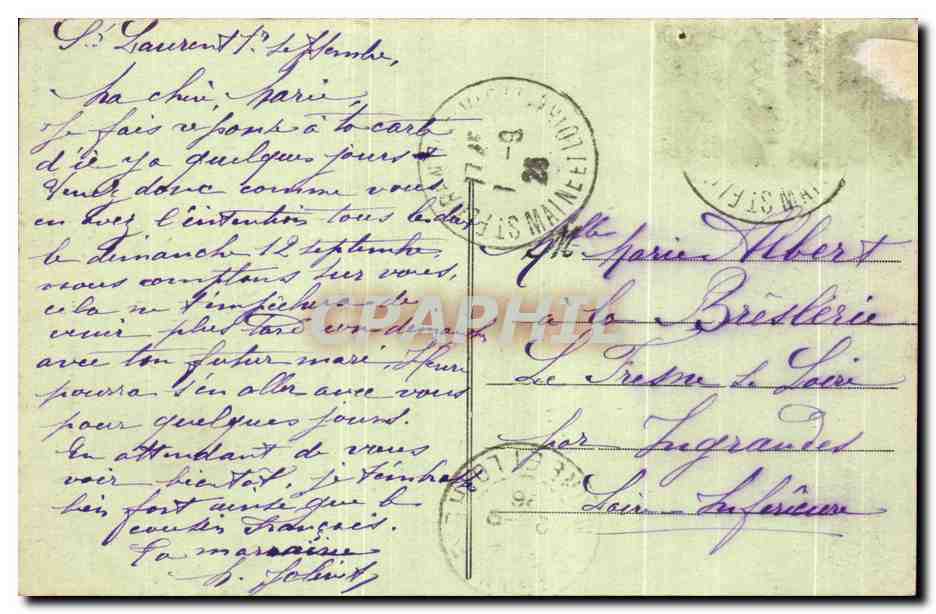 St Laurent 1er Septembre,
Ma chère Marie,
Je fais réponse à ta carte
d'il y a quelques jours
Venez donc comme vous
en avez l'intention tous les deux
le dimanche 12 septembre
nous comptons sur vous,
cela ne t'empêchera de
venir plus tard
avec ton futur mari, Henri
pourra s'en aller avec vous
pour quelques jours.
En attendant de vous
voir bientôt, je t'embrasse
bien fort ainsi que le
cousin François.
Ta marraine
Mlle Marie Albert
à la Brêslérie
Le Fresne s Loire
par Ingrandes
Loire Inférieure
CPARHIL
1 - 9
26